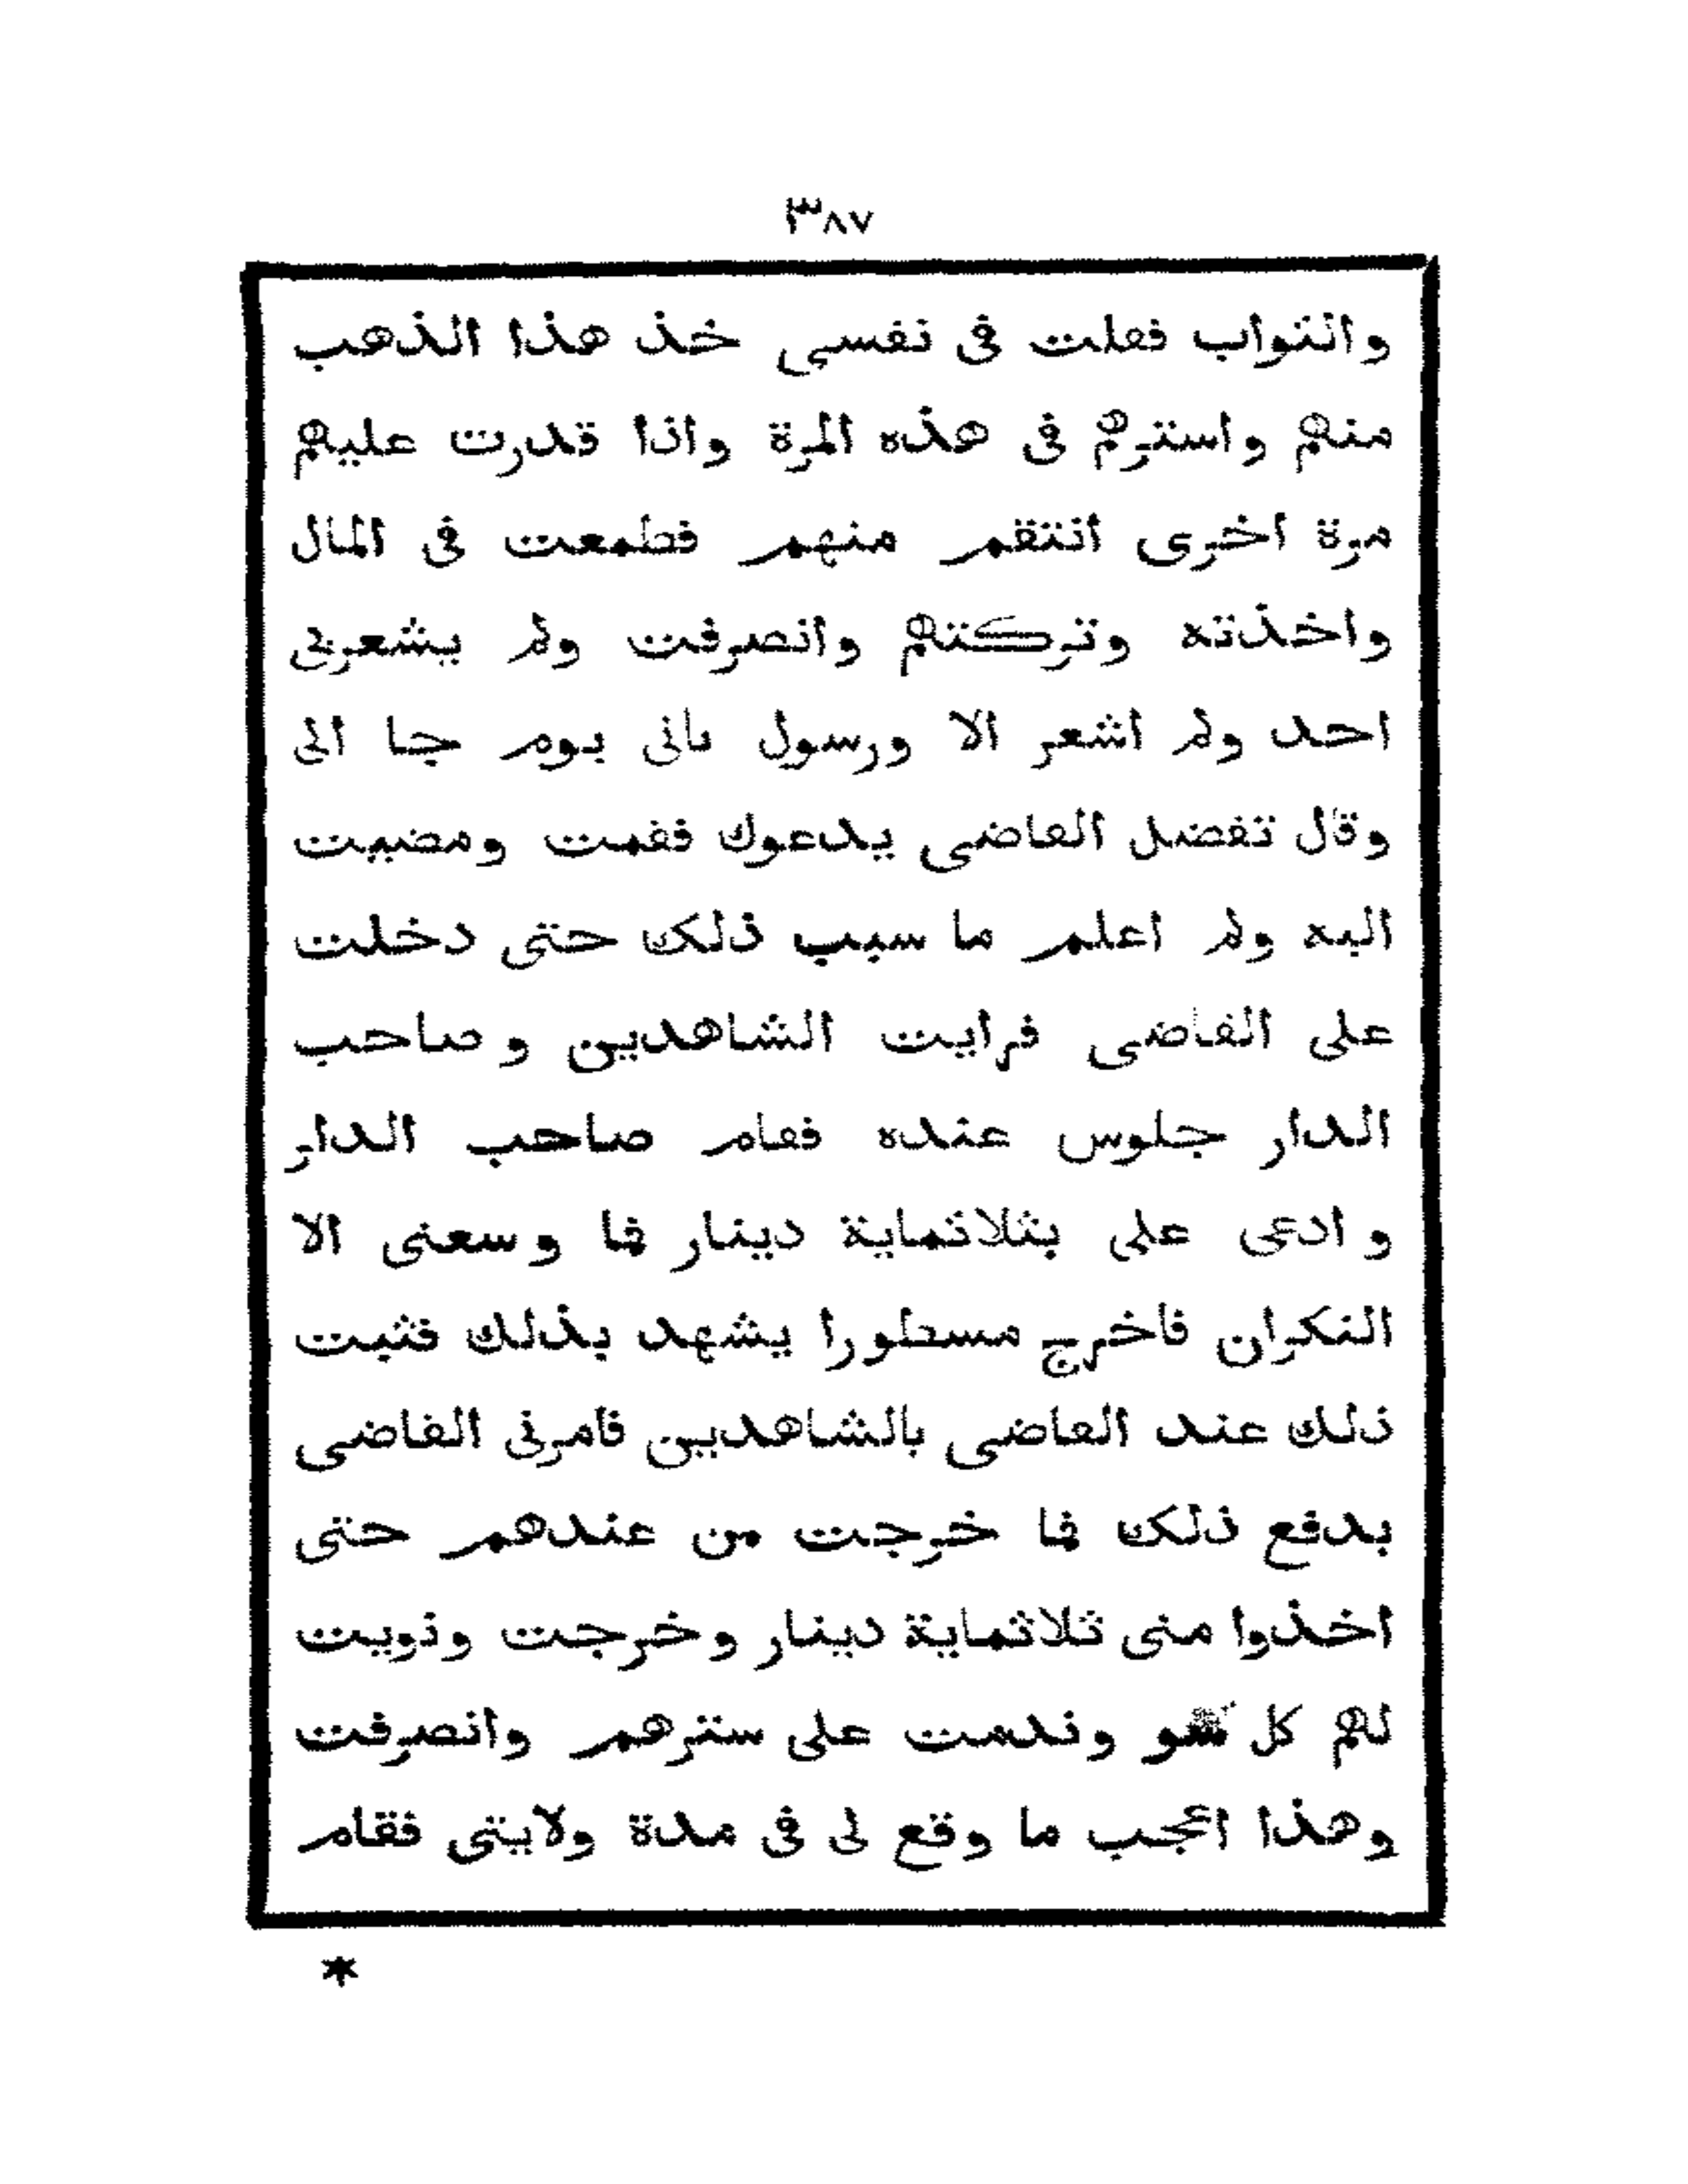 ٣٨٧
والثواب فقلت فى نفسى خذ هذا الذهب
منهم واسترهم فى هذه المرة واذا قدرت عليهم
مرة اخرى انتقم منهم فطمعت فى المال
واخذته وتركتهم وانصرفت ولم يشعر بى
احد ولم اشعر الا ورسول ثانى يوم جا الى
وقال تفضل القاضى يدعوك فقمت ومضيت
اليه ولم اعلم ما سبب ذلك حتى دخلت
على القاضى فرايت الشاهدين وصاحب
الدار جلوس عنده فقام صاحب الدار
وادعى على بثلاثماية دينار فما وسعنى الا
النكران فاخرج مسطورا يشهد بذلك فثبت
ذلك عند القاضى بالشاهدين فامرنى القاضى
بدفع ذلك فما خرجت من عندهم حتى
اخذوا منى ثلاثماية دينار وخرجت ونويت
لهم كل وندمت على سترهم وانصرفت
وهذا اعجب ما وقع لى فى مدة ولايتى فقام
*